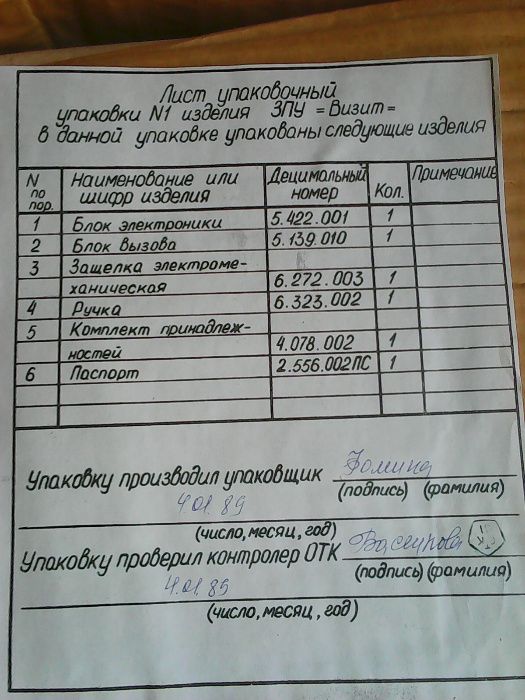 Лист упаковочный
упаковки N1 изделия ЗПУ =Визит=
в данной упаковке упакованы следующие изделия
N по пор. Наименование или шифр изделия Децимальный номер Кол. Примечание
1 Блок электроники 5.422.001 1
2 Блок вызова 5.139.010 1
3 Защелка электроме-
ханическая 6.272.003 1
4 Ручка 6.323.002 1
5 Комплект принадлеж-
ностей 4.078.002 1
6 Паспорт 2.556.002ПС 1
Упаковку производил упаковщик Фомина
(подпись) (фамилия)
4.01.89
(число, месяц, год)
Упаковку проверил контролер ОТК
(подпись) (фамилия)
4.01.89
(число, месяц, год)